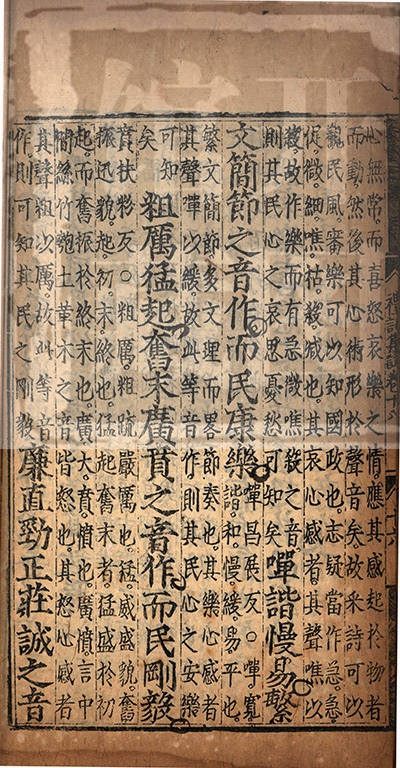 心無常而喜怒哀樂之情應其感起於物者
而動然後其心術形於聲音矣故采詩可以
觀民風審樂可以知國政也志疑當作急急
促微細噍枯殺減也其哀心感者其聲噍以
殺故作樂而有急微噍殺之音
則其民心之哀思憂愁可知矣
嘽諧慢易繁
文簡節之音作而民康樂
嘽昌展反○嘽寬
諧和慢緩易平也
繁文簡節多文理而畧節奏也其樂心感者
其聲嘽以緩故此等音作則其民心之安樂
可知
矣
粗厲猛起奮末廣賁之音作而民剛毅
賁扶粉反○粗厲粗疏嚴厲也猛威盛貌奮
振迅貌起初末終也猛起奮末者猛盛於初
起而奮振於終末也廣大賁憤也廣憤言中
間絲竹匏土革木之音皆怒也其怒心感者
其聲粗以厲故此等音
作則可知其民之剛毅
廉直勁正莊誠之音